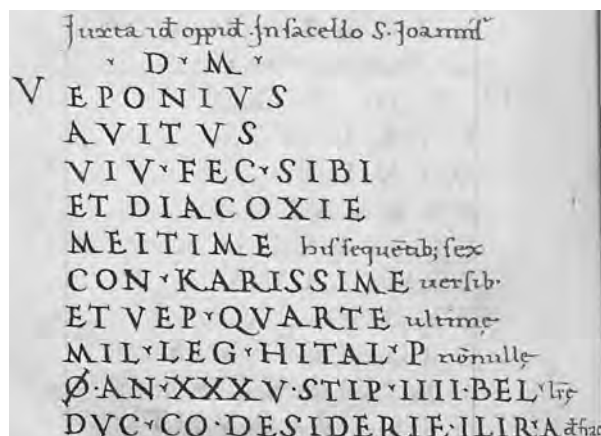 Juxta id oppid. In sacello S. Joannis
D M
V EPONIVS
AVITVS
VIV FEC SIBI
ET DIACOXIE
MEITIME his sequētib; sex
CON KARISSIME uersib.
ET VEP QVARTE ultimę
MIL LEG HITAL P nōnullę
Ø AN XXXV STIP IIII BEL lr̄ę
DVC CO DESIDERIE ILIR A